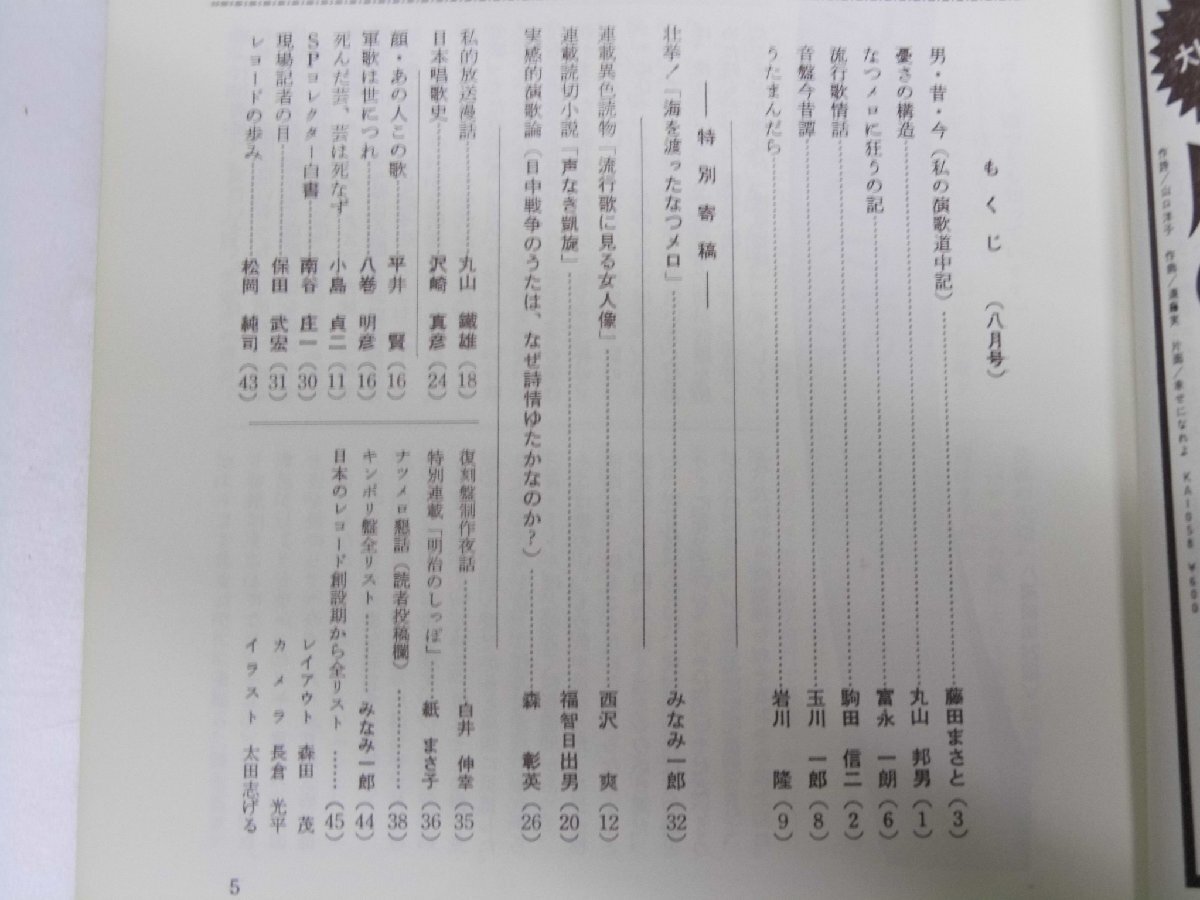 もくじ (八月号)
男・昔・今(私の演歌道中記) 藤田まさと(3)
憂さの構造 丸山 邦男(1)
なつメロに狂うの記 富永 一朗(6)
流行歌情話 駒田 信二(2)
音盤今昔譚 玉川 一郎(8)
うたまんだら 岩川 隆(9)
―特別寄稿―
壮挙!「海を渡ったなつメロ」 みなみ一郎(32)
連載異色読物「流行歌に見る女人像」 西沢 爽(12)
連載読切小説「声なき凱旋」 福智日出男(20)
実感的演歌論(日中戦争のうたは、なぜ詩情ゆたかなのか?) 森 彰英(26)
私的放送漫話 丸山 鐵雄(18)
日本唱歌史 沢崎 真彦(24)
顔・あの人この歌 平井 賢(16)
軍歌は世につれ 八巻 明彦(16)
死んだ芸、芸は死なず 小島 貞二(11)
SPコレクター白書 南谷 庄一(30)
現場記者の目 保田 武宏(31)
レコードの歩み 松岡 純司(43)
復刻盤制作夜話 白井 伸幸(35)
特別連載「明治のしっぽ」 紙 まさ子(36)
ナツメロ懇話(読者投稿欄) (38)
キンポリ盤全リスト みなみ一郎(44)
日本のレコード創設期から全リスト (45)
レイアウト 森田 茂
カメラ 長倉 光平
イラスト 太田志げる
5
作詩/山口洋子 作曲/遠藤実 片面/幸せになれよ KA1058 ¥600